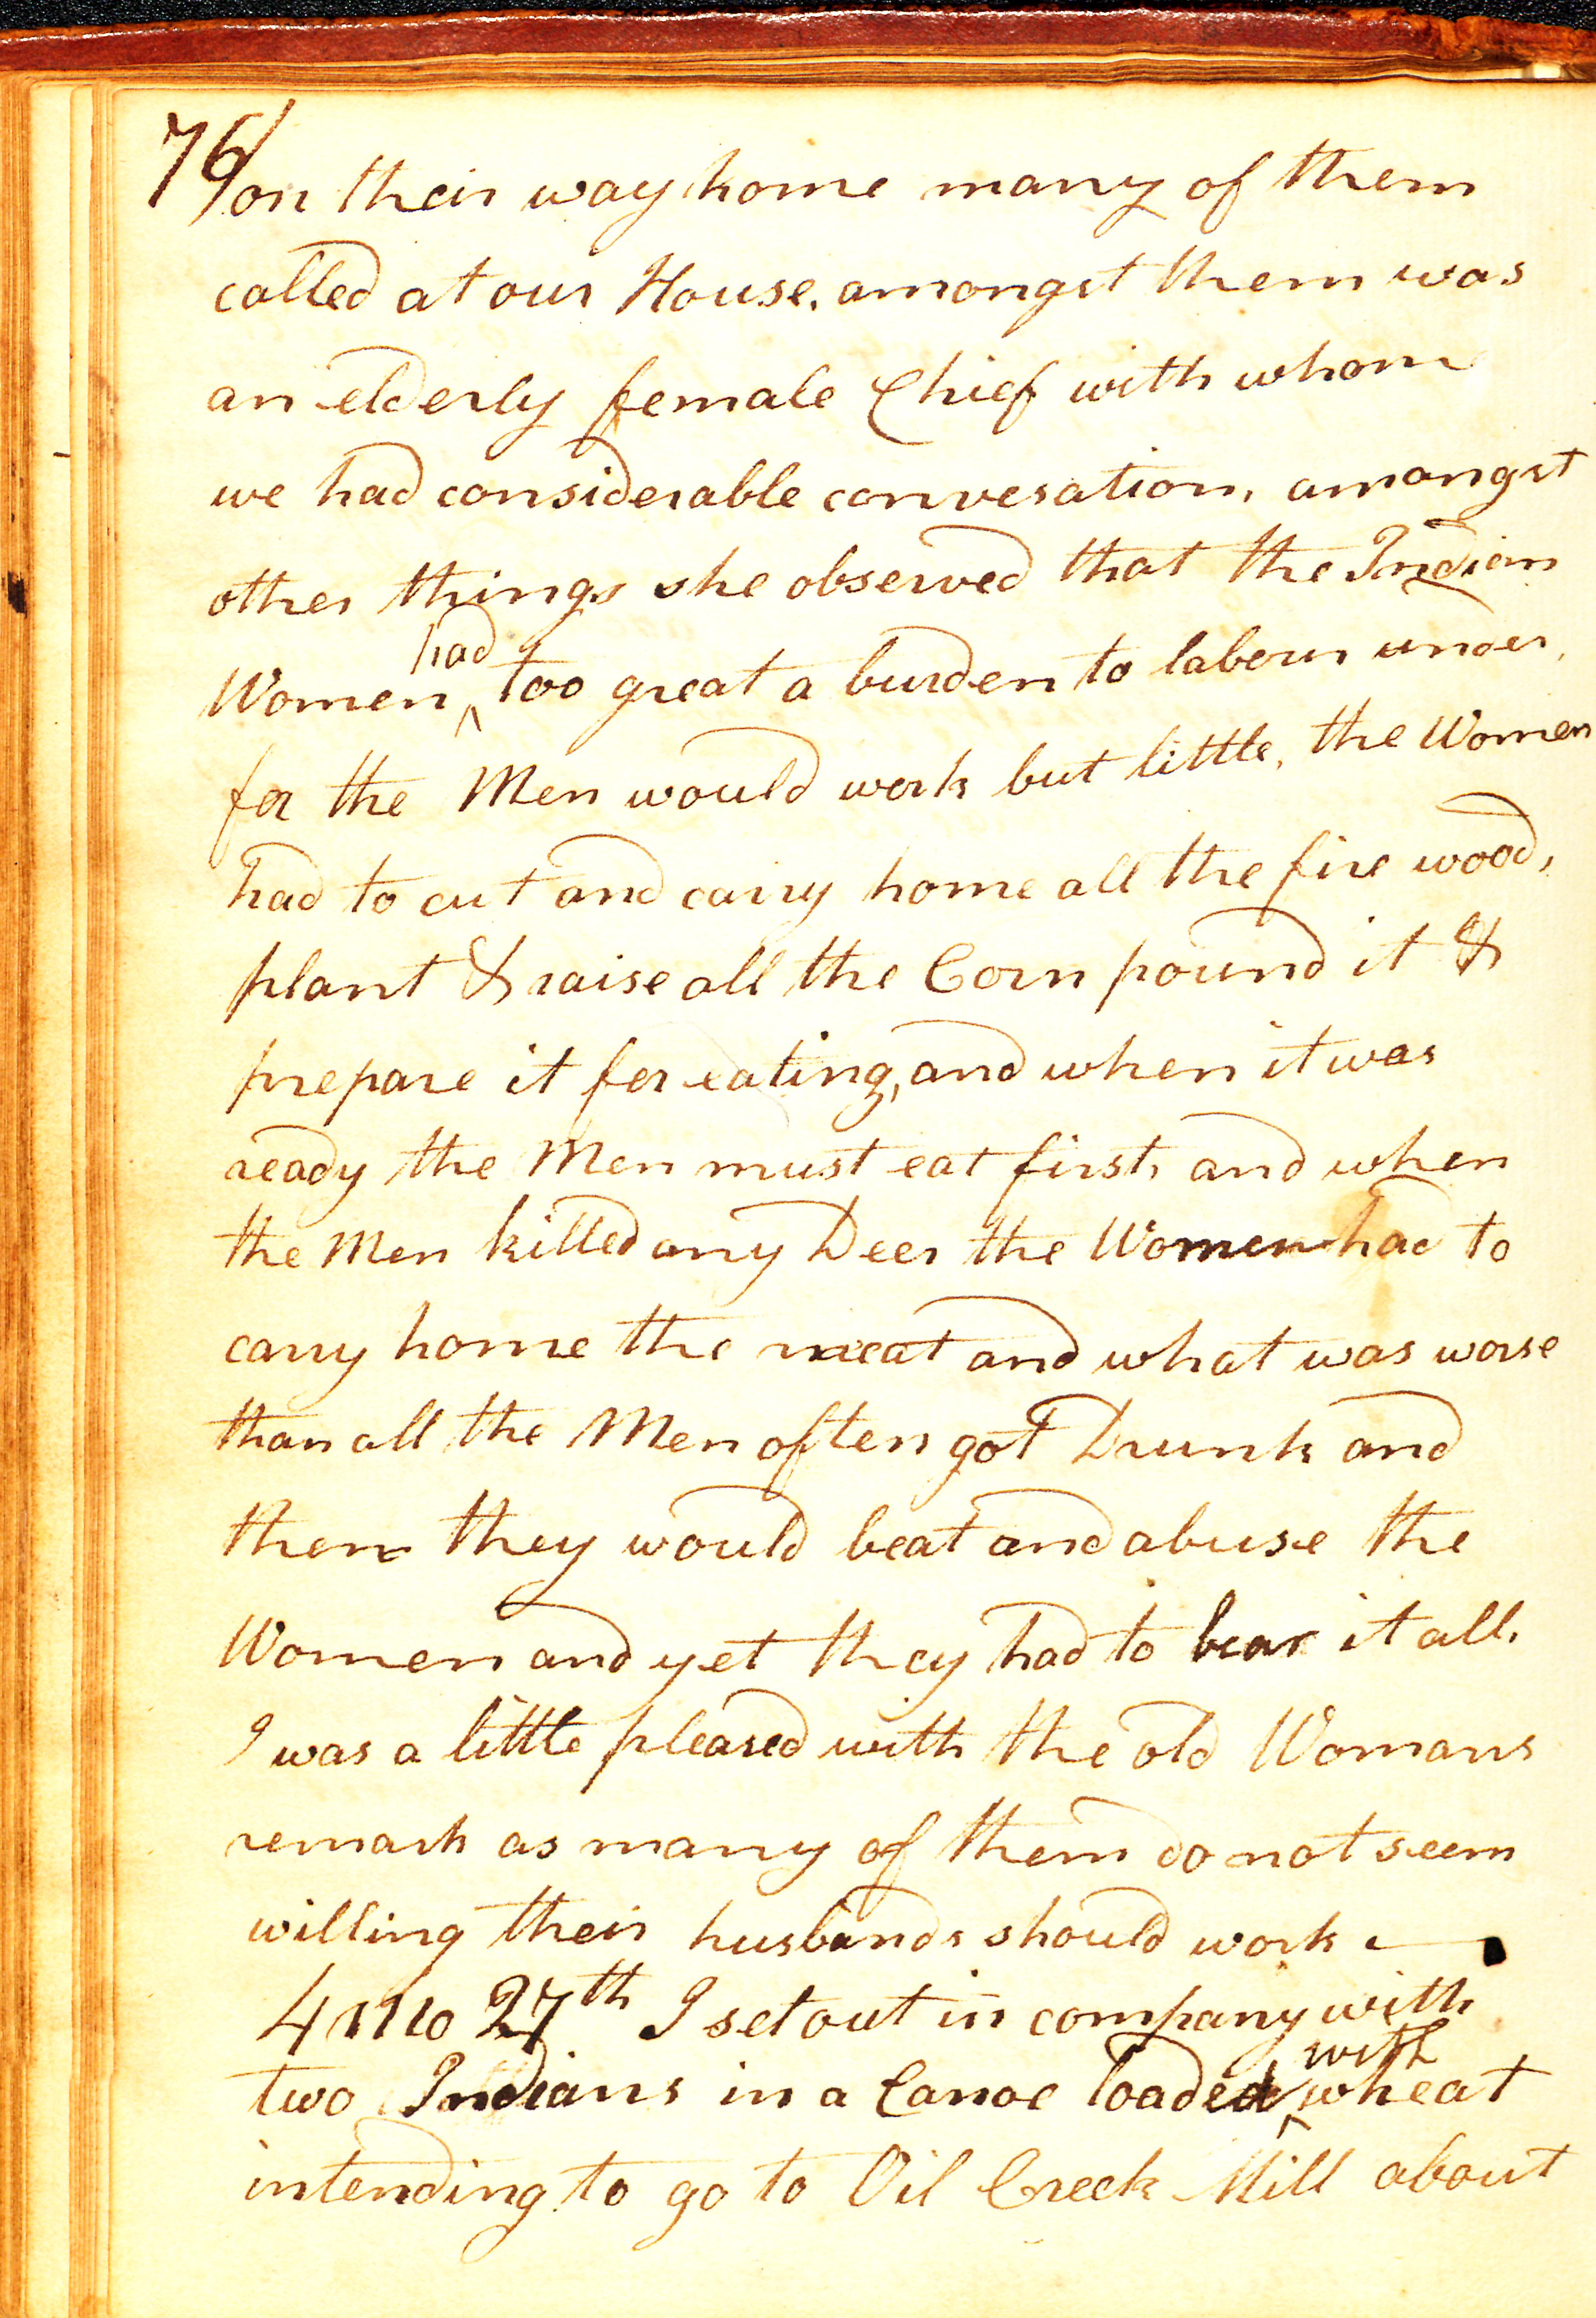 76/ on their way home many of them
called at our House. amongst them was
an elderly female Chief with whom
we had considerable convesation, amongst
other things she observed that the Indian
Women ^had too great a burden to labour under,
for the Men would work but little, the Women
had to cut and carry home all the fire wood,
plant & raise all the Corn pound it &
prepare it for eating, and when it was
ready the Men must eat first, and when
the Men killed any Deer the Women had to
carry home the meat and what was worse
than all the Men often got Drunk and
then they would beat and abuse the
Women and yet they had to bear it all.
I was a little pleased with the old Womans
remark as many of them do not seem
willing their husbands should work —
4 mo 27th I set out in company with
two Indians in a Canoe loaded ^with wheat
intending to go to Oil Creek Mill about